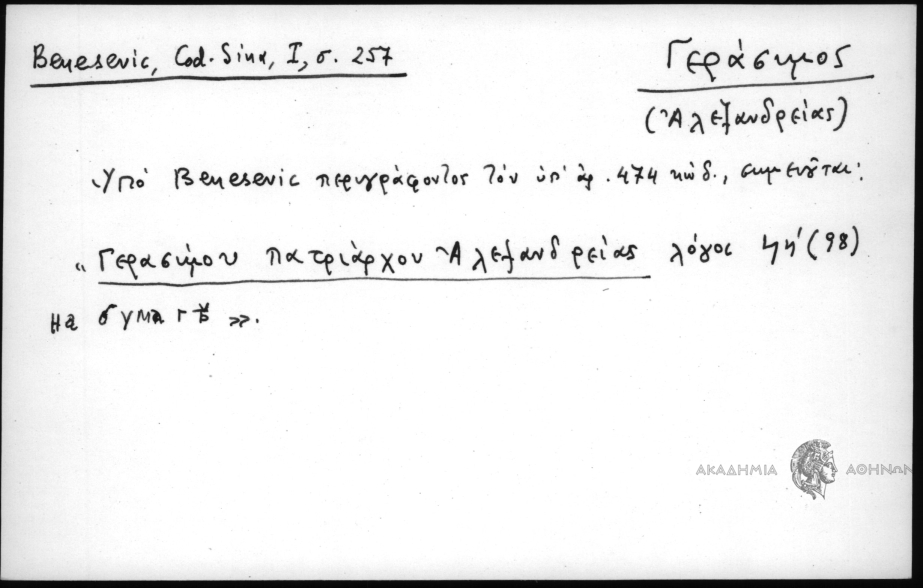 Benesevic, Cod. Sina, I, σ. 257
Γεράσιμος
(Ἀλεξανδρείας)
Ὑπό Benesevic περιγράφοντος τόν ὑπ' ἀρ. 474 κώδ., σημειοῦται:
“Γερασίμου πατριάρχου Ἀλεξανδρείας λόγος ϟη' (98)
на бумагѣ».
ΑΚΑΔΗΜΙΑ ΑΘΗΝΩΝ